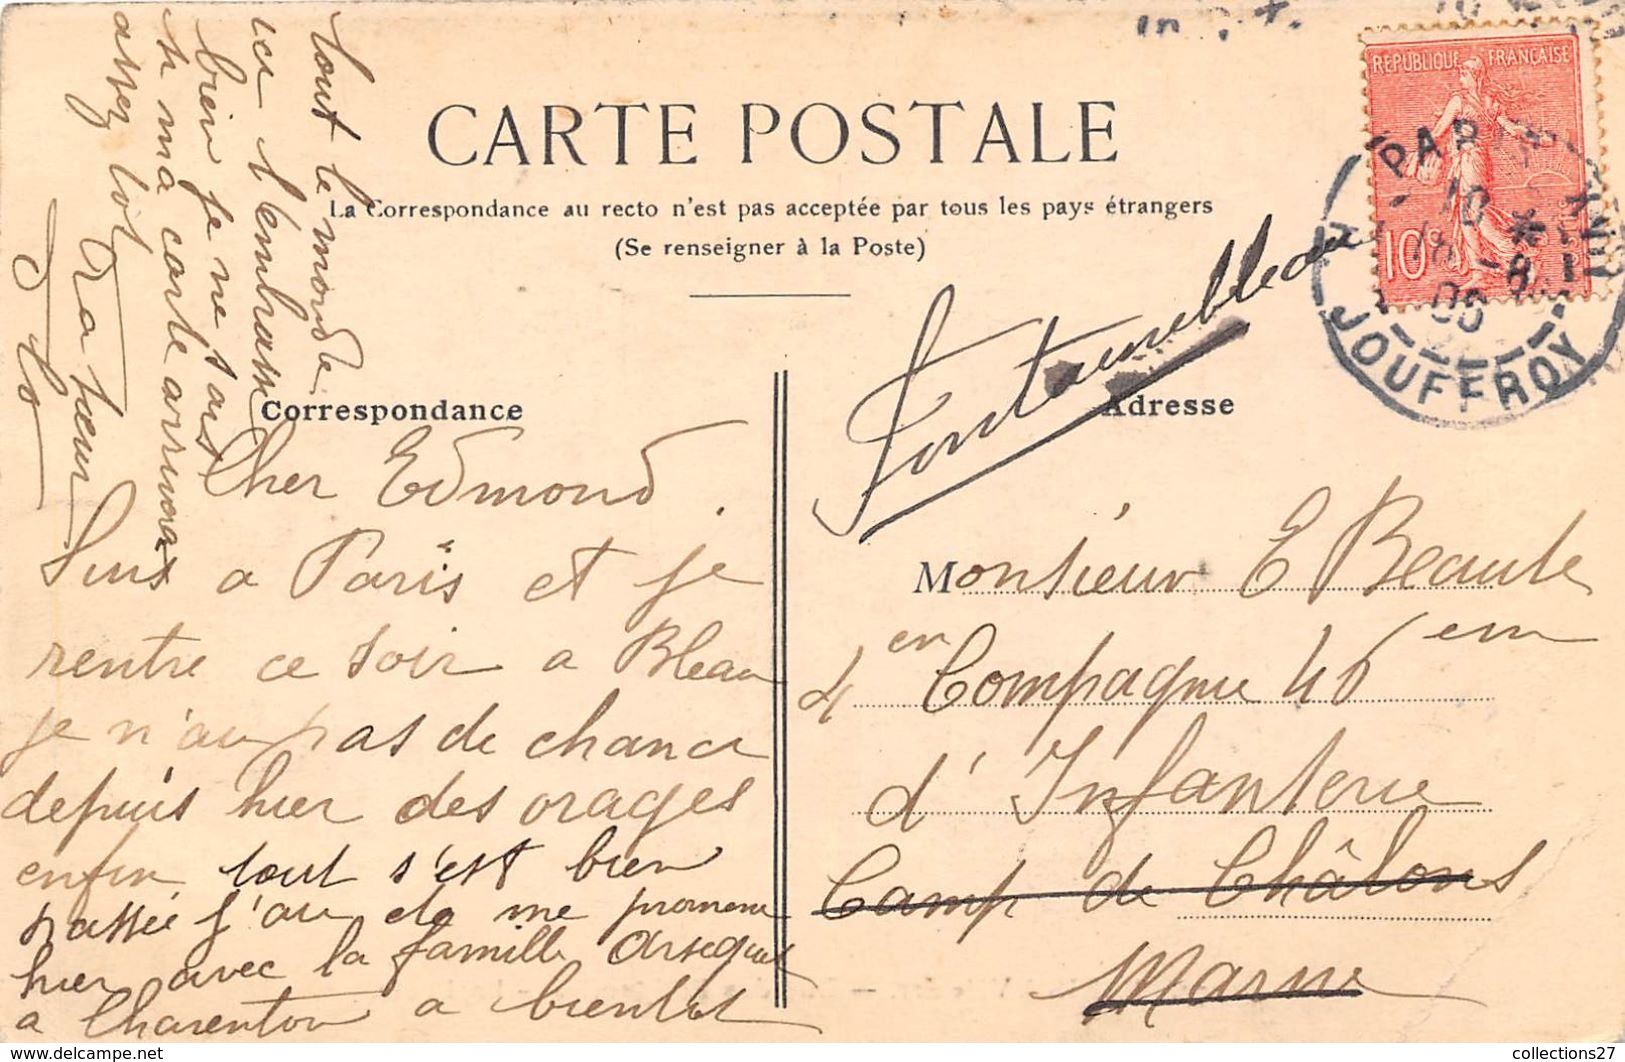 CARTE POSTALE
La Correspondance au recto n'est pas acceptée par tous les pays étrangers
(Se renseigner à la Poste)
REPUBLIQUE FRANÇAISE
10c
PARIS
10 *
-8
05
JOUFFROY
Correspondance
Adresse
Fontainebleau
Cher Edmond.
Suis a Paris et je
rentre ce soir a Bleau
je n'ai pas de chance
depuis hier des orages
enfin tout s'est bien
passée j'ai ete me promené
hier avec la famille
a Charenton a bientot
Monsieur E Beaute
4 en Compagnie 46 em
d'Infanterie
Camp de Châlons
Marne
tout le monde
ici t'embrasse
bien je ne sais
si ma carte arrivera
assez tot
Ta sœur